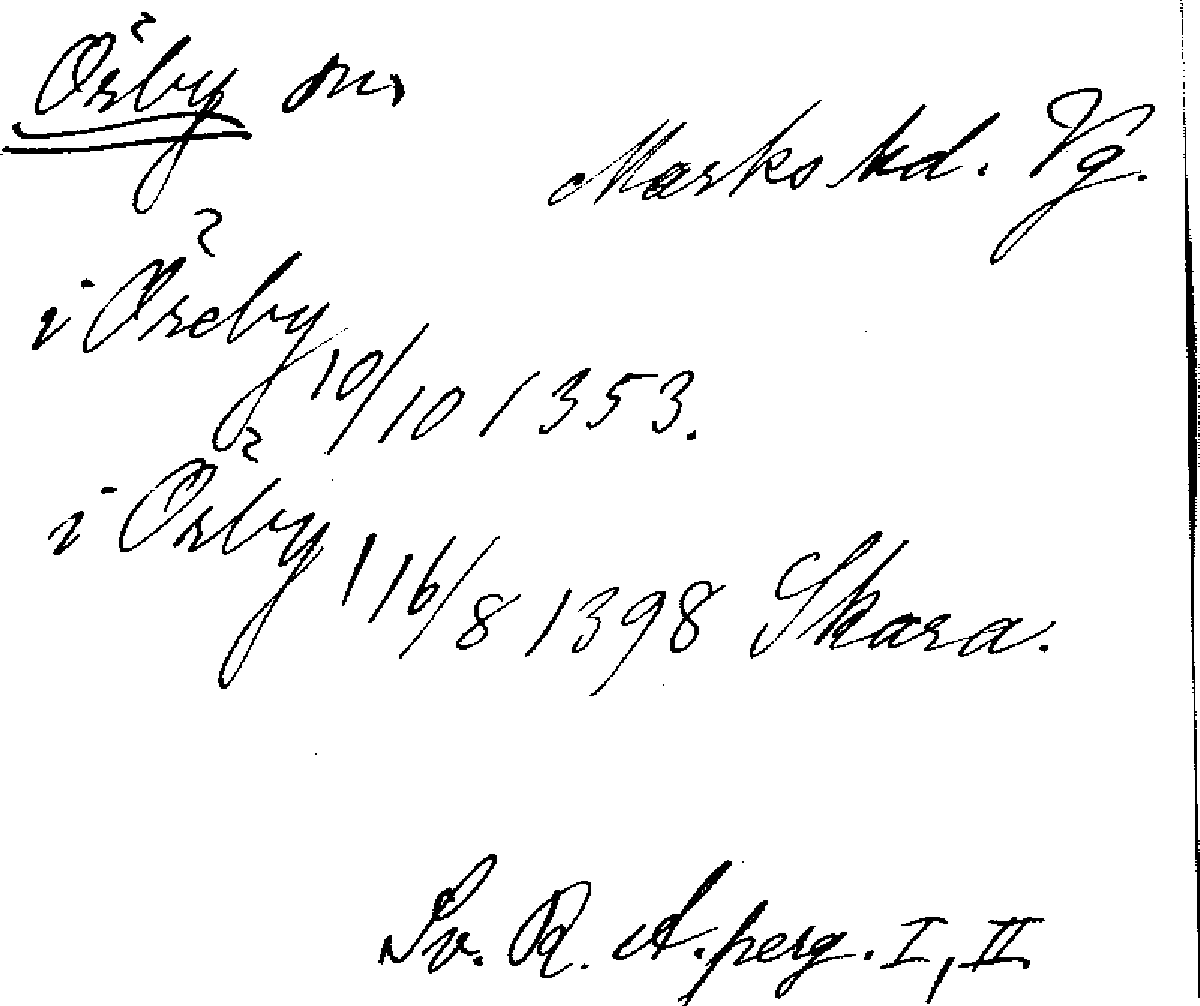 Örby sn
Marks hd. Vg.
i Öreby 10/10 1353.
i Örby 116/8 1398 Skara.
Sv. R. A. perg. I, II.